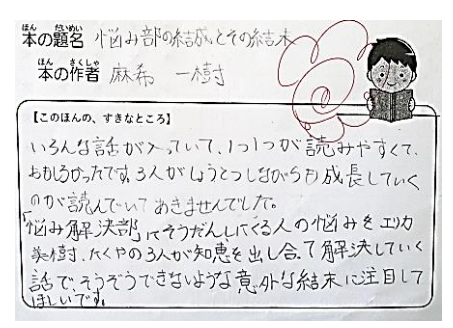 本の題名 悩み部の結成とその結末
ほん だいめい
本の作者 麻希 一樹
ほん さくしゃ
【このほんの、すきなところ】
いろんな話が入っていて、1つ1つが読みやすくて、
おもしろかったです。3人がしょうとつしながらも成長していく
のが読んでいてあきませんでした。
「悩み解決部」にそうだんしにくる人の悩みをエリカ
美樹、たくやの3人が知恵を出し合って解決していく
話で、そうぞうできないような意外な結末に注目して
ほしいです。